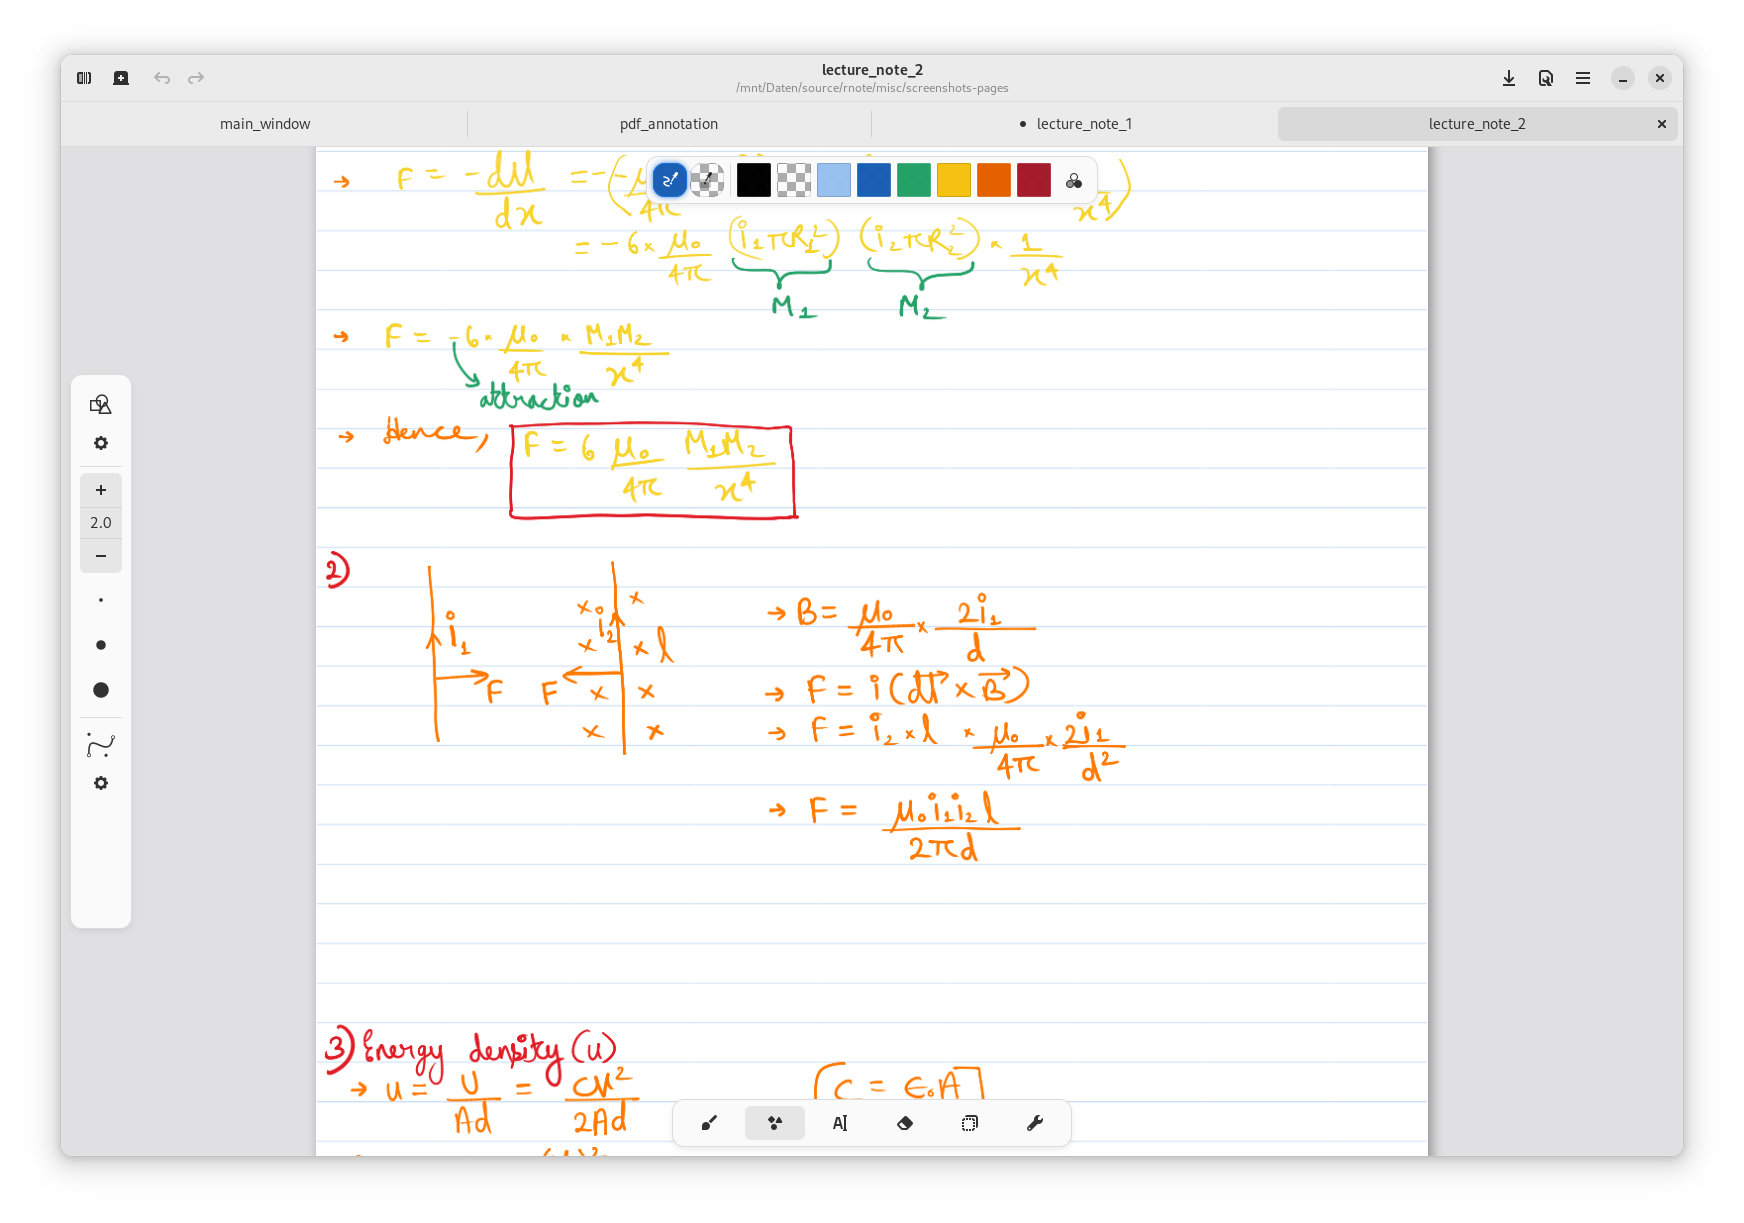 lecture_note_2
/mnt/Daten/source/rnote/misc/screenshots-pages
main_window
pdf_annotation
• lecture_note_1
lecture_note_2
→ F = -dU/dx = -(-μ/4π x⁴)
= -6 × μ₀/4π (i₁πR₁²) (i₂πR₂²) × 1/x⁴
M₁ M₂
→ F = -6 × μ₀/4π × M₁M₂/x⁴
attraction
→ Hence, F = 6 μ₀/4π M₁M₂/x⁴
+
2.0
−
2)
i₁ i₂ l
F F
→ B = μ₀/4π × 2i₁/d
→ F = i(dl⃗ × B⃗)
→ F = i₂ × l × μ₀/4π × 2i₁/d²
→ F = μ₀i₁i₂l/2πd
3) Energy density (u)
→ u = U/Ad = CV²/2Ad
C = ε₀A
AI